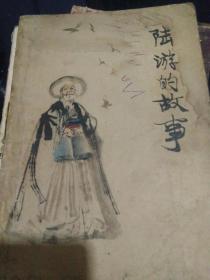 陆游的故事